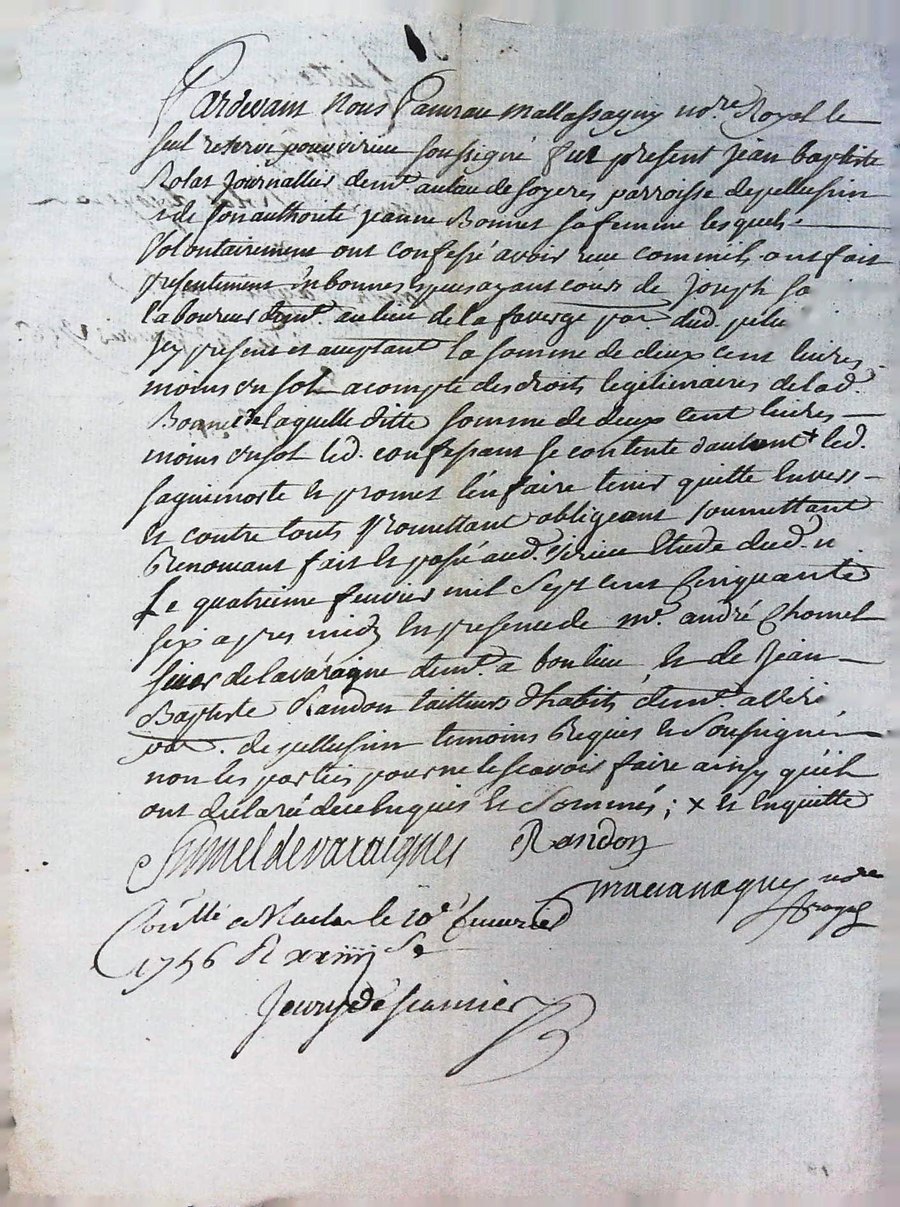 Pardevant Nous Mallassagny no.re Royal le
seul reservé soussigné fut present Jean baptiste
Rolat Journallier dem.t au lieu de Soyeres parroisse de pellussin
et de son authorité jeanne Bonnet sa femme lesquels
Volontairement ont confessé avoir reçu comme ils ont fait
presentement en bonnes especes ayant cours de Joseph
laboureur dem.t au lieu de la faverge par. dud.
icy present et aceptant la somme de deux cent livres
moins un sol acompte des droits legitimaires de lad.
Bonnet de laquelle ditte somme de deux cent livres
moins un sol led. confessant se contente dautant x led.
et promet l'en faire tenir quitte envers
et contre touts promettant obligeant soumettant
Renonçant fait et passé aud. étude dud. n.
Le quatrieme fevrier mil sept cent cinquante
six apres midy en presence de m.r andré Chomel
sieur de lavaraigne dem.t a bonlieu et de Jean
Baptiste Randon tailleur d'habits dem.t
par. de pellussin temoins Requis et Soussignés
non les parties pour ne le scavoir faire ainsy qu'ils
ont declaré de ce enquis et Sommés ; x et enquitte
de varaignes Randon
no.re
Royal
Con.llé a le 10.e fevrier
1756 R xxiiij s.